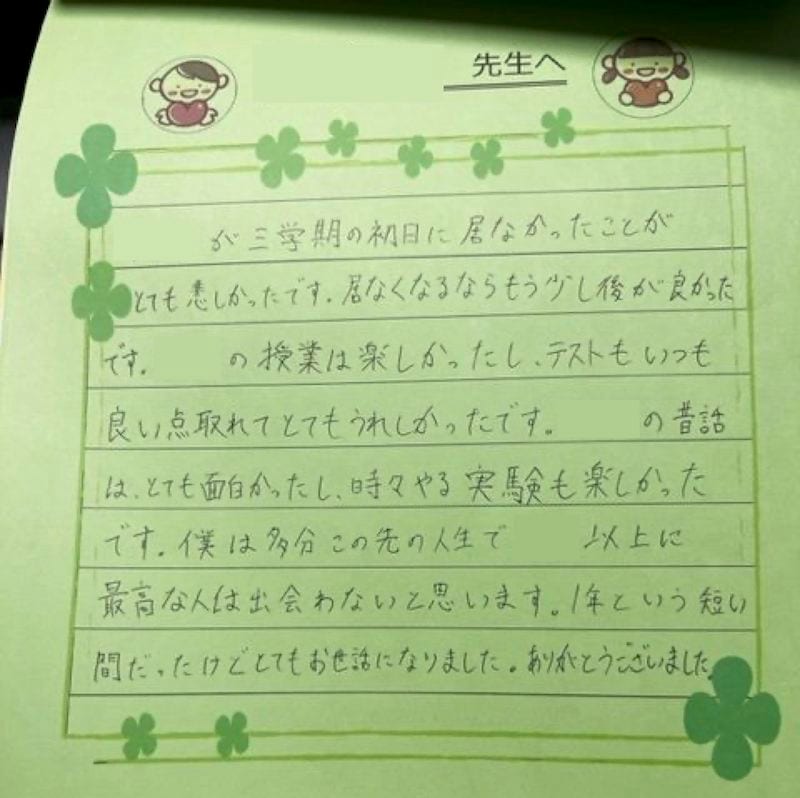 先生へ
が三学期の初日に居なかったことが
とても悲しかったです。居なくなるならもう少し後が良かった
です。 の授業は楽しかったし、テストもいつも
良い点取れてとてもうれしかったです。 の昔話
は、とても面白かったし、時々やる実験も楽しかった
です。僕は多分この先の人生で 以上に
最高な人は出会わないと思います。1年という短い
間だったけどとてもお世話になりました。ありがとうございました。